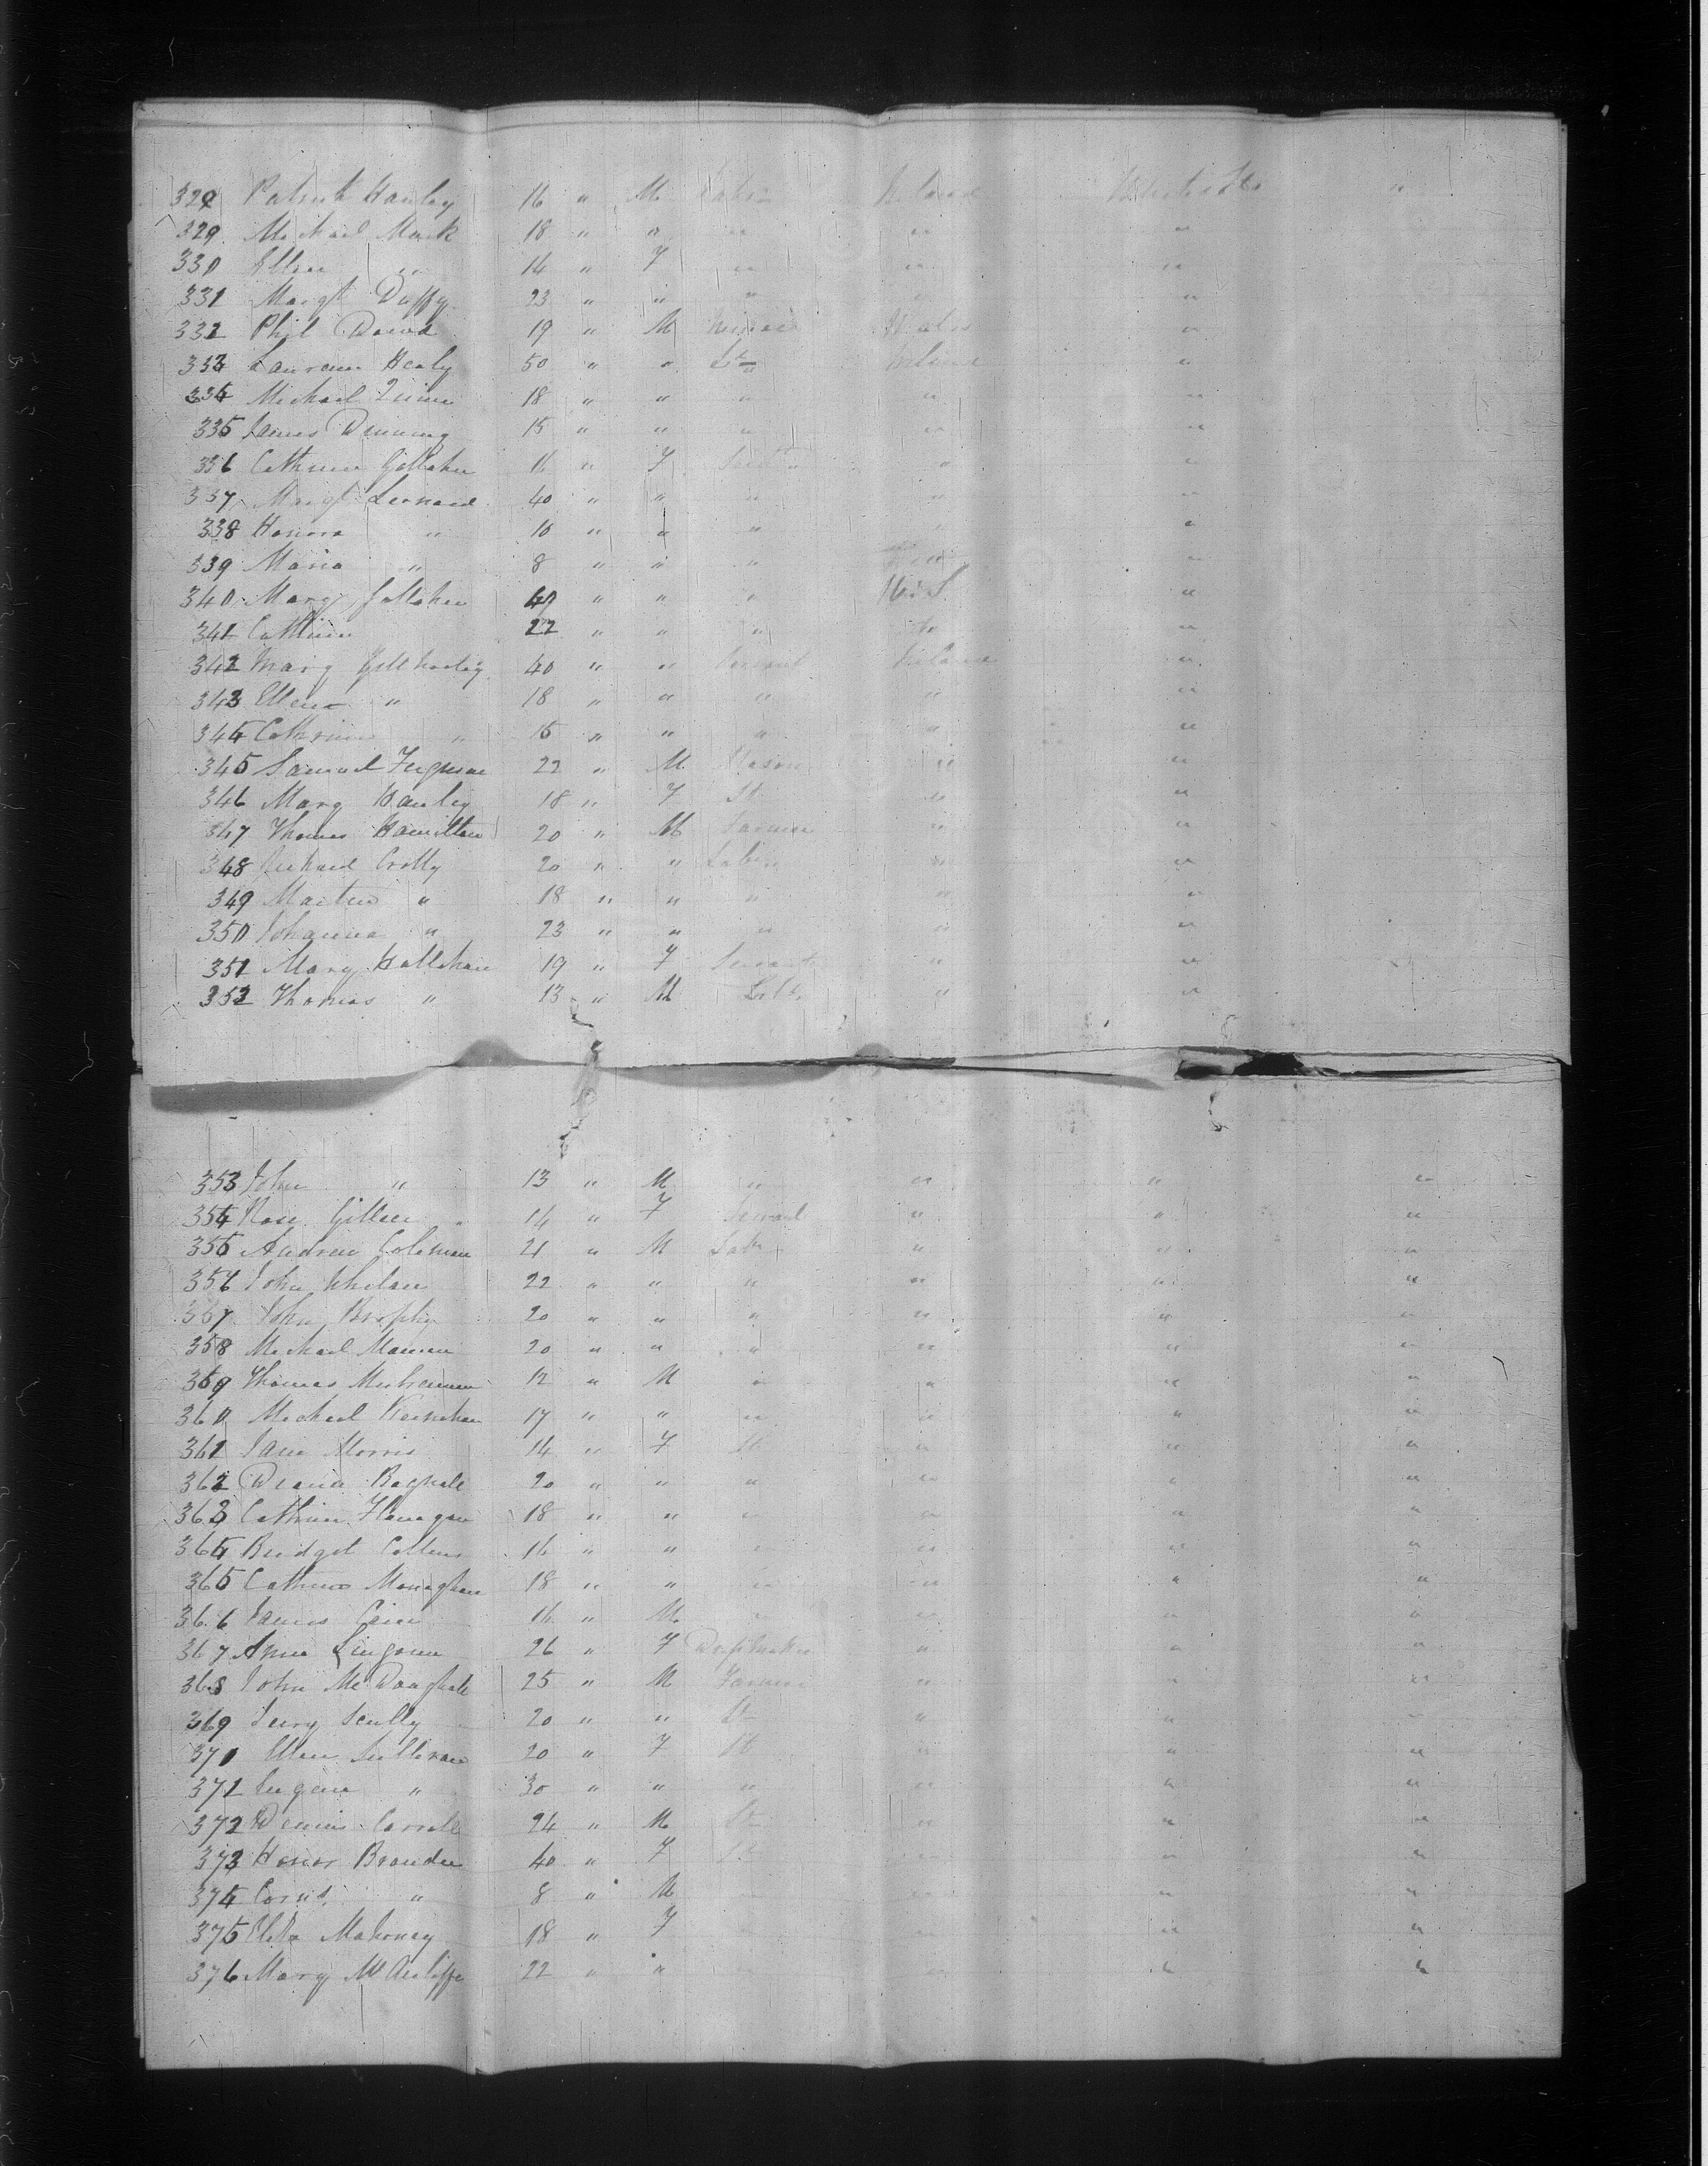 328 Patrick Hanley 16 " M Labr Ireland United Sts "
329 Michael Mack 18 " " " " "
330 Ellen " 14 " F " " "
331 Margt Duffy 23 " " " " "
332 Phil David 19 " M Miner Wales "
333 Laurence Healy 50 " " Lr Ireland "
334 Michael Quinn 18 " " " " "
335 James Dunning 15 " " " " "
336 Cathrine Gallaher 16 " F " "
337 Margt Leonard 40 " " " " "
338 Honora " 10 " " " "
339 Maria " 8 " " " " "
340 Mary Gallaher 40 " " " U.S. "
341 Cathrine 22 " " " " "
342 Mary 40 " " Servant Ireland "
343 Ellen " 18 " " " " "
344 Cathrine " 15 " " " " "
345 Samuel Ferguson 22 " M Mason " "
346 Mary Hanley 18 " F St " "
347 Thomas Hamilton 20 " M Farmer " "
348 Richard Crotty 20 " " Labr " "
349 Martin " 18 " " " " "
350 Johanna " 23 " " " " "
351 Mary Hallahan 19 " F Servant " "
352 Thomas " 13 " M Labr " "
353 John " 13 " M " " " "
354 Rose Gillen 14 " F Servant " " "
355 Andrew Coleman 21 " M Labr " " "
356 John Whelan 22 " " " " " "
357 John Brophy 20 " " " " " "
358 Michael 20 " " " " " "
359 Thomas 12 " M " " " "
360 Michael Kernahan 17 " " " " " "
361 Jane Morris 14 " F St " " "
362 20 " " " " " "
363 Cathrine Flanagan 18 " " " " " "
364 Bridget Collins 16 " " " " " "
365 Cathrine Monaghan 18 " " " " " "
366 James Cain 16 " M " " " "
367 Anne 26 " F Dressmaker " " "
368 John McDonghall 25 " M Farmer " " "
369 Scully 20 " " Lr " " "
370 Ellen Sullivan 20 " F St " " "
371 Eugene " 30 " " " " " "
372 Dennis Carroll 24 " M Lr " " "
373 Honor 40 " F St " " "
374 Corns " 8 " M " "
375 Mahoney 18 " F " "
376 Mary McAuliffe 22 " " " " "